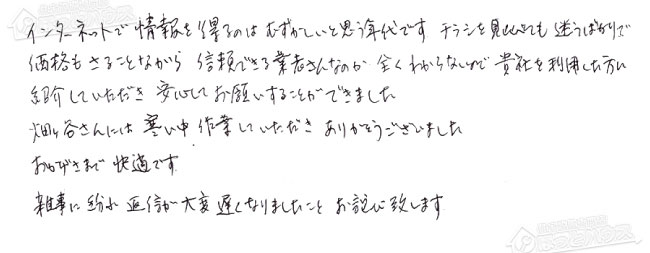 インターネットで情報を得るのはむずかしいと思う年代です チラシを見比べても迷うばかりで
価格もさることながら 信頼できる業者さんなのか 全くわからないので 貴社を利用した方に
紹介していただき 安心してお願いすることができました
畑ヶ谷さんには寒い中 作業していただき ありがとうございました
おかげさまで 快適です
雑事に紛れ 返信が大変遅くなりましたこと お詫び致します